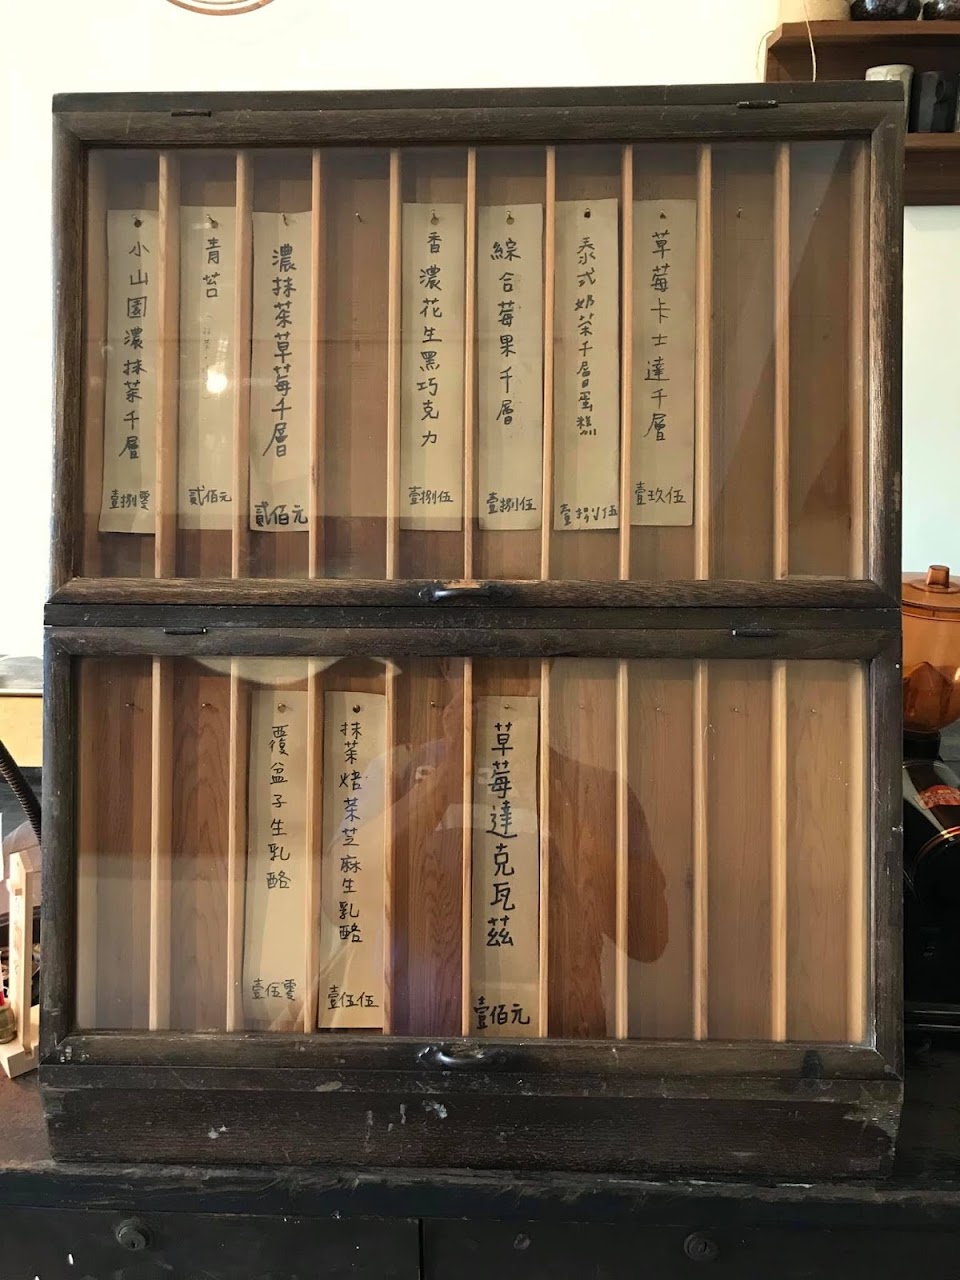 草莓卡士達千層
壹玖伍
泰式奶茶千層蛋糕
壹捌伍
綜合莓果千層
壹捌伍
香濃花生黑巧克力
壹捌伍
濃抹茶草莓千層
貳佰元
青苔
貳佰元
小山園濃抹茶千層
壹捌零
草莓達克瓦茲
壹佰元
抹茶焙茶芝麻生乳酪
壹伍伍
覆盆子生乳酪
壹伍零